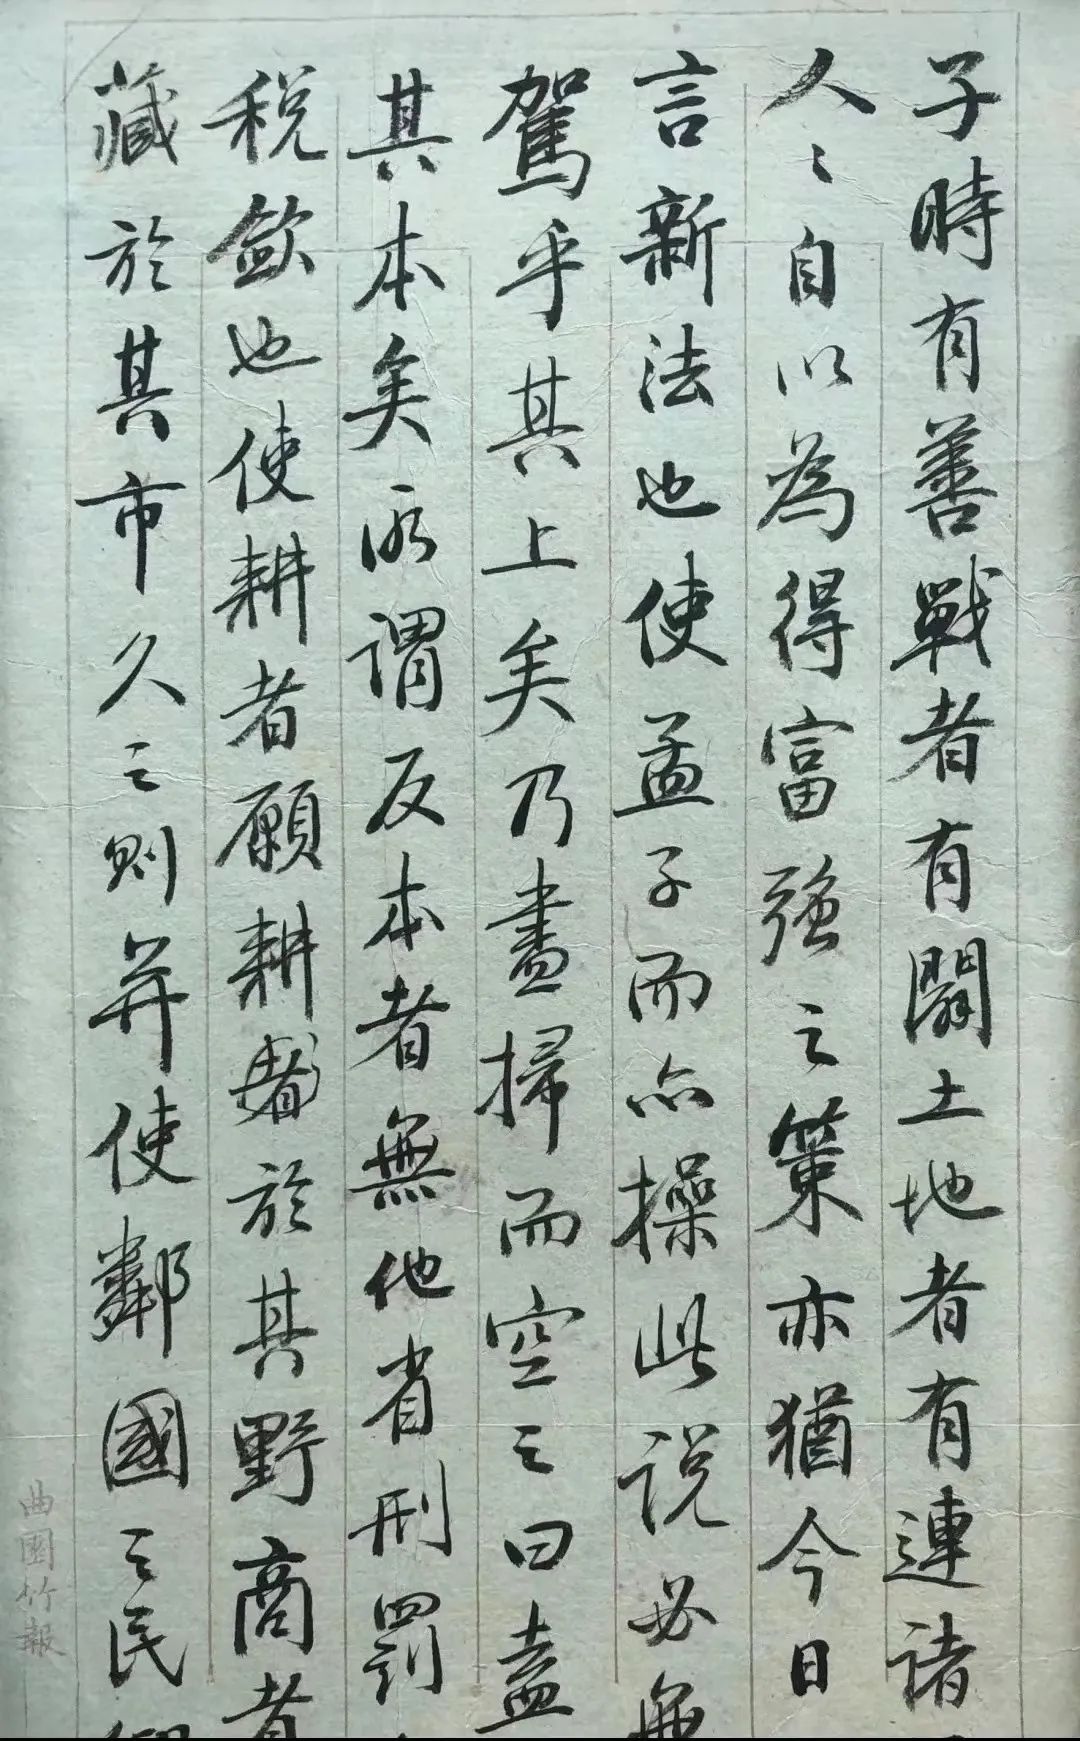 子時有善戰者有闢土地者有連諸
人〻自以為得富強之策亦猶今日
言新法也使孟子而亦操此說必無
駕乎其上矣乃盡掃而空之曰盍
其本矣所謂反本者無他省刑罰
稅斂也使耕者願耕者於其野商者
藏於其市久之則并使鄰國之民
曲園竹報